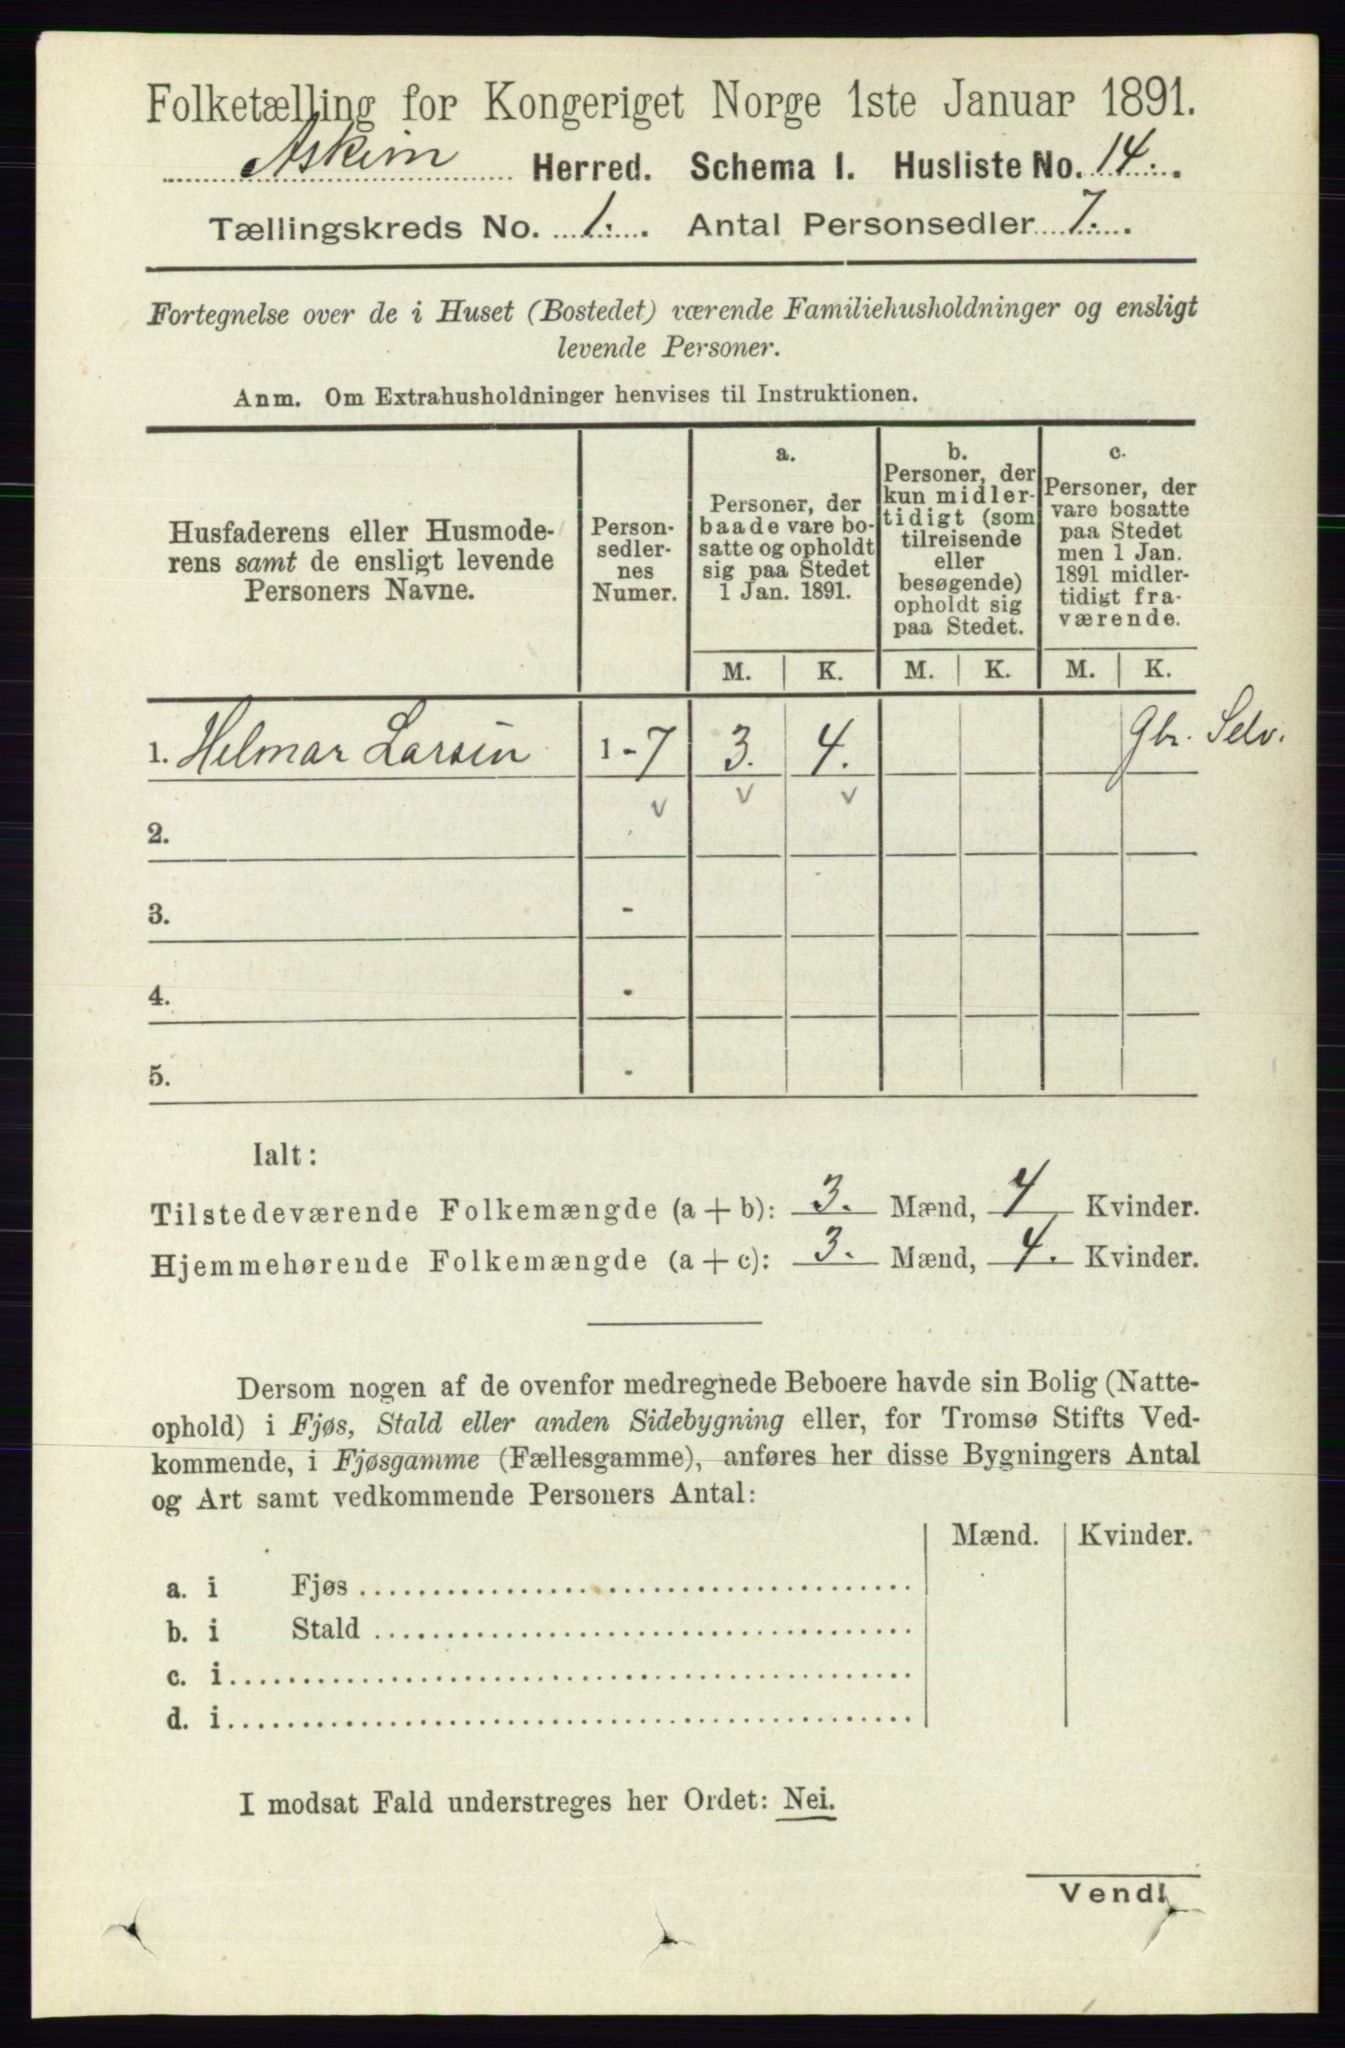 Folketælling for Kongeriget Norge 1ste Januar 1891.
Askim Herred. Schema I. Husliste No. 14.
Tællingskreds No. 1. Antal Personsedler 7.
Fortegnelse over de i Huset (Bostedet) værende Familiehusholdninger og ensligt
levende Personer.
Anm. Om Extrahusholdninger henvises til Instruktionen.
Husfaderens eller Husmode-
rens samt de ensligt levende
Personers Navne.
Person-
sedler-
nes
Numer.
a.
Personer, der
baade vare bo-
satte og opholdt
sig paa Stedet
1 Jan. 1891.
b.
Personer, der
kun midler-
tidigt (som
tilreisende
eller
besøgende)
opholdt sig
paa Stedet.
c.
Personer, der
vare bosatte
paa Stedet
men 1 Jan.
1891 midler-
tidigt fra-
værende.
M. K. M. K. M. K.
1. Helmar Larsen 1 - 7 3. 4. Gbr. Selv.
v v v
2.
3. -
4. -
5. -
Ialt:
Tilstedeværende Folkemængde (a + b): 3. Mænd, 4 Kvinder.
Hjemmehørende Folkemængde (a + c): 3. Mænd, 4. Kvinder.
Dersom nogen af de ovenfor medregnede Beboere havde sin Bolig (Natte-
ophold) i Fjøs, Stald eller anden Sidebygning eller, for Tromsø Stifts Ved-
kommende, i Fjøsgamme (Fællesgamme), anføres her disse Bygningers Antal
og Art samt vedkommende Personers Antal:
Mænd. Kvinder.
a. i Fjøs
b. i Stald
c. i
d. i
I modsat Fald understreges her Ordet: Nei.
Vend!